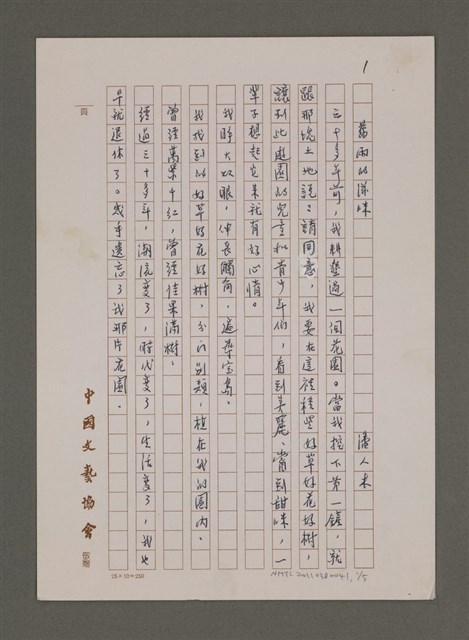 1
舊雨的滋味
潘人木
三十多年前，我耕墾過一個花園。當我挖下第一鋤，就
跟那塊土地說：請同意，我要在這裡種些好草好花好樹，
讓到此遊園的兒童和青少年們，看到美麗、嘗到甜味，一
輩子想起它來就有好心情。
我睜大双眼，伸長觸角，遍尋寶島。
我找到的好草好花好樹，分門別類，植在我的園內。
曾經萬紫千紅，曾經佳果滿樹。
經過三十多年，潮流變了，時代變了，生活變了，我也
早就退休了。幾乎遺忘了我那片花園。
頁
中國文藝協會
25×10=250
NMTL 2011 028 0041, 1/5